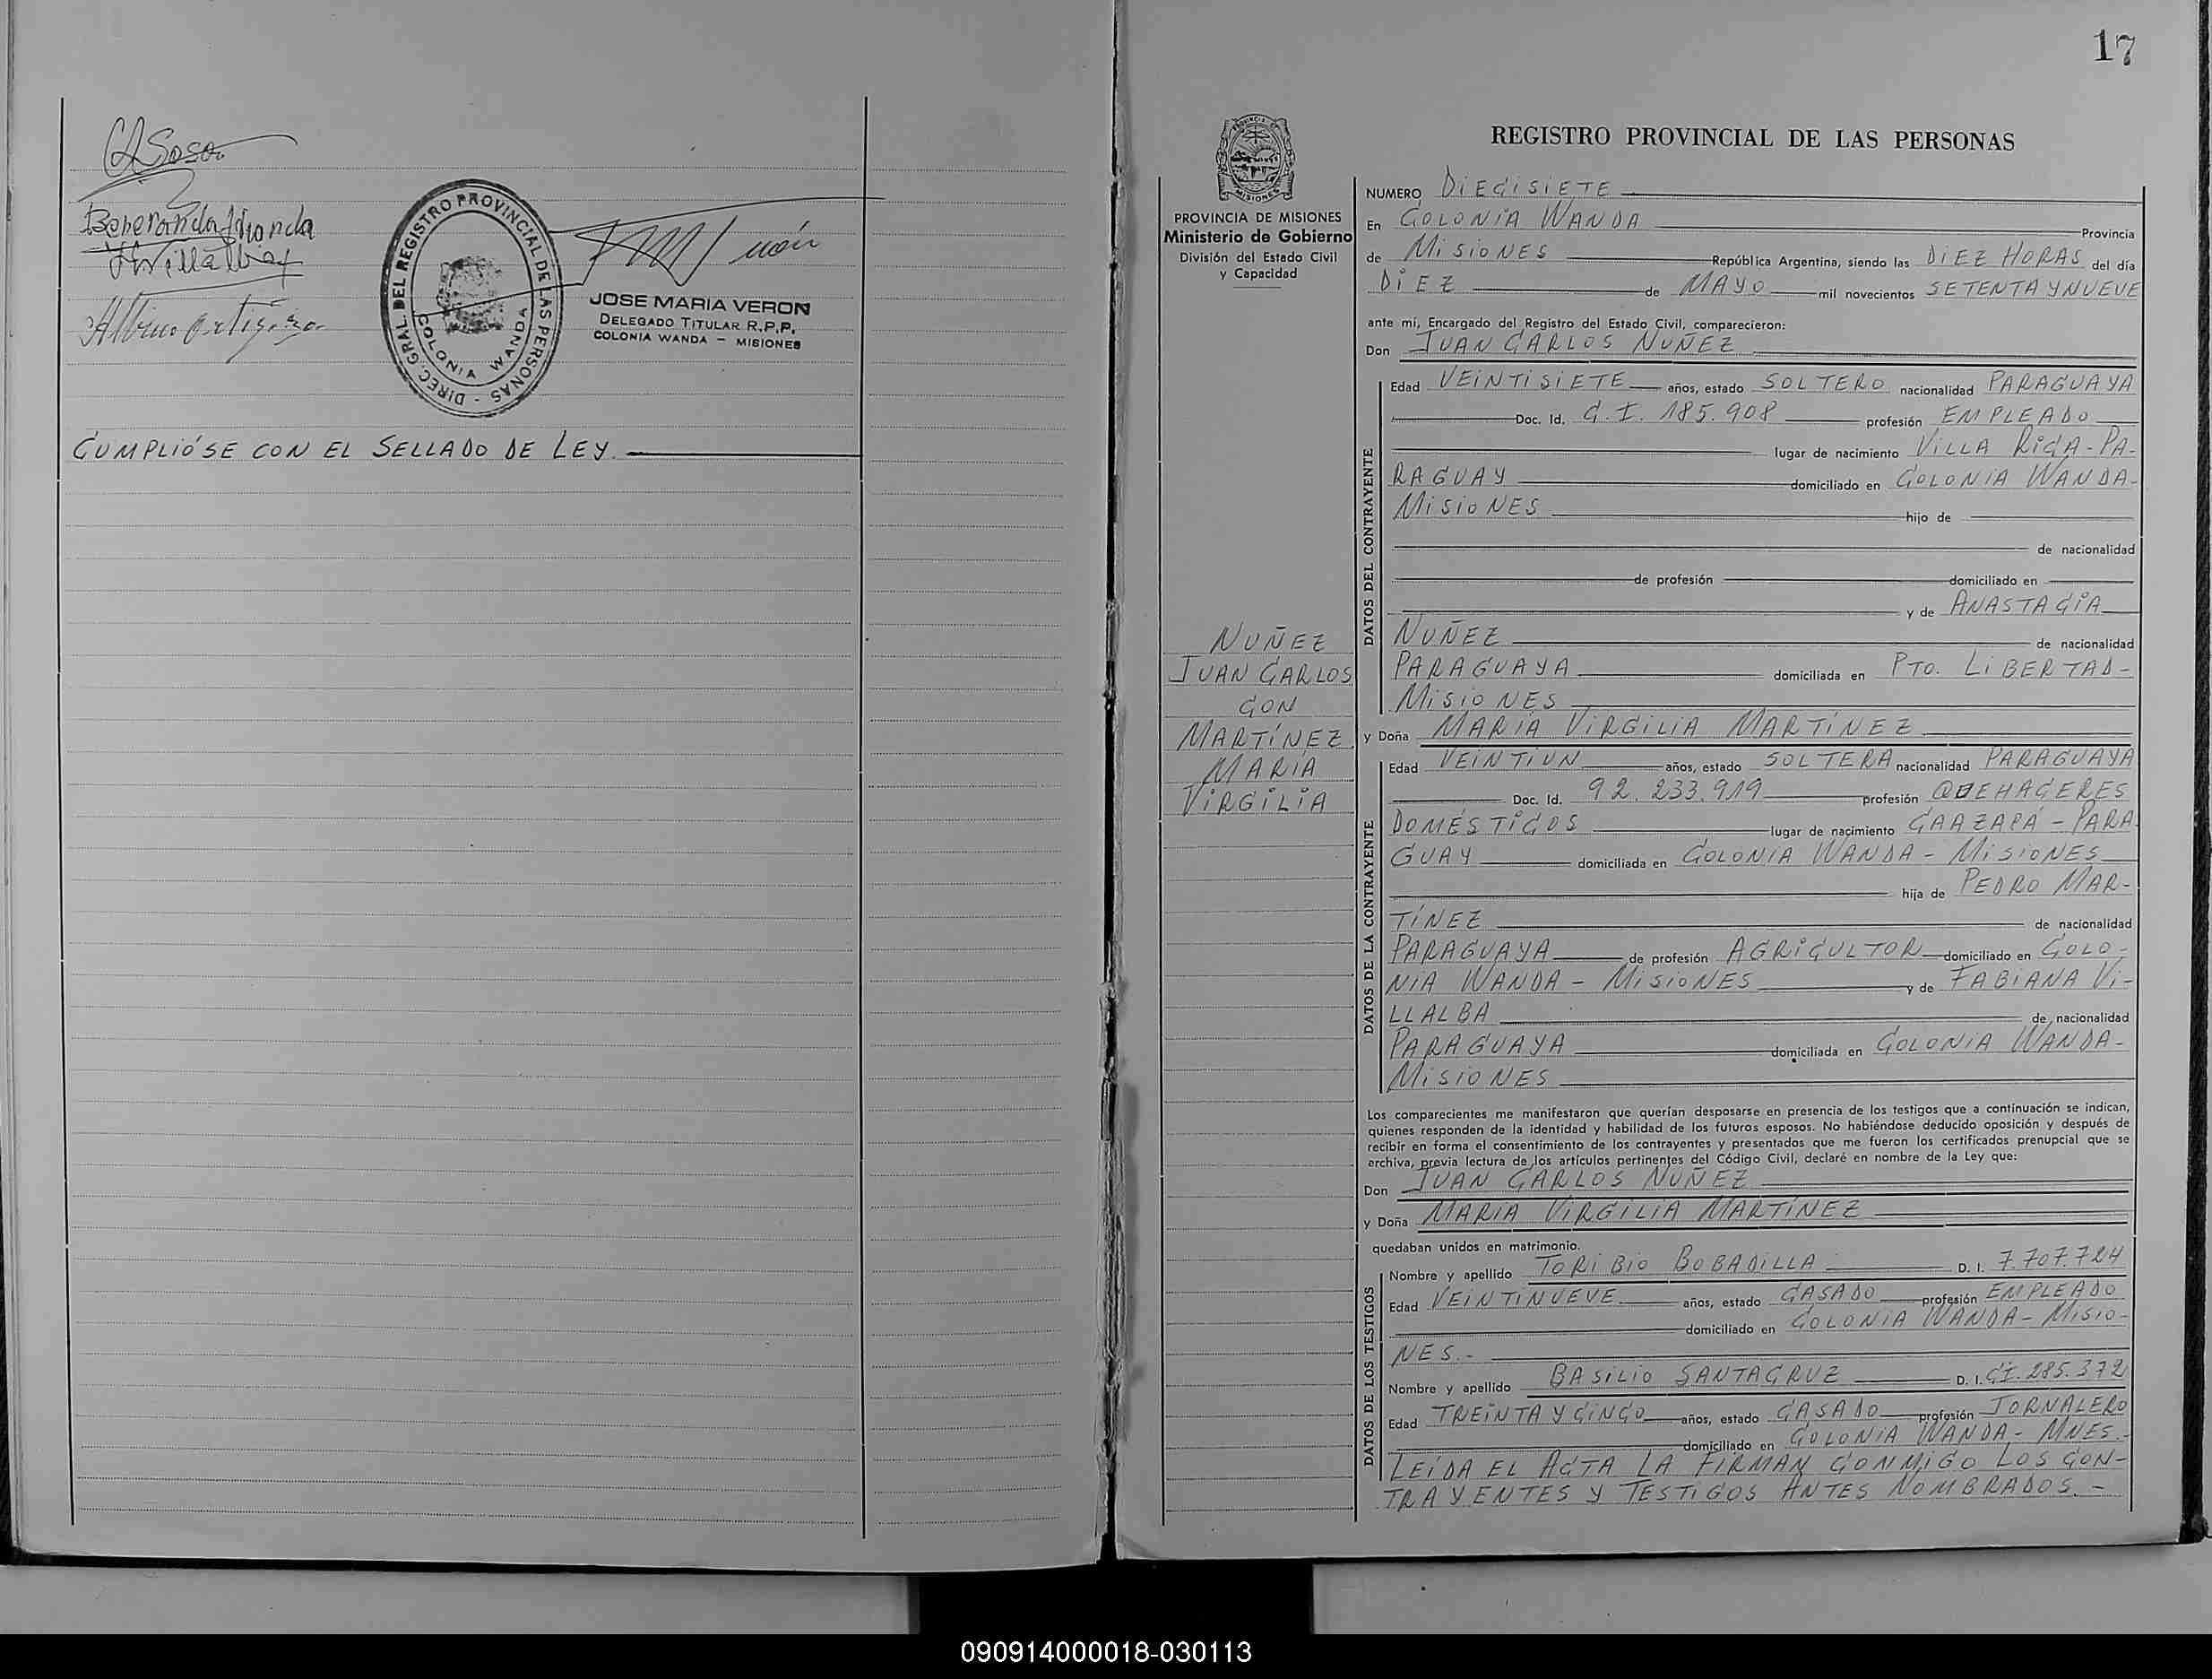 Sosa
Villalba
DIREC. GRAL. DEL REGISTRO PROVINCIAL DE LAS PERSONAS -
COLONIA WANDA
JOSE MARIA VERON
DELEGADO TITULAR R.P.P.
COLONIA WANDA - MISIONES
CUMPLIÓSE CON EL SELLADO DE LEY.
17
REGISTRO PROVINCIAL DE LAS PERSONAS
PROVINCIA DE MISIONES
Ministerio de Gobierno
División del Estado Civil
y Capacidad
NUÑEZ
JUAN CARLOS
CON
MARTÍNEZ
MARIA
VIRGILIA
NUMERO DIECISIETE
En COLONIA WANDA Provincia
de MISIONES República Argentina, siendo las DIEZ HORAS del día
DIEZ de MAYO mil novecientos SETENTA Y NUEVE
ante mí, Encargado del Registro del Estado Civil, comparecieron:
Don JUAN CARLOS NUÑEZ
DATOS DEL CONTRAYENTE
Edad VEINTISIETE años, estado SOLTERO nacionalidad PARAGUAYA
Doc. Id. C.I. 185.908 profesión EMPLEADO
lugar de nacimiento VILLA RICA - PA-
RAGUAY domiciliado en COLONIA WANDA-
MISIONES hijo de
de nacionalidad
de profesión domiciliado en
y de ANASTACIA
NUÑEZ de nacionalidad
PARAGUAYA domiciliada en PTO. LIBERTAD-
MISIONES
y Doña MARIA VIRGILIA MARTÍNEZ
DATOS DE LA CONTRAYENTE
Edad VEINTIUN años, estado SOLTERA nacionalidad PARAGUAYA
Doc. Id. 92.233.919 profesión QUEHACERES
DOMÉSTICOS lugar de nacimiento CAAZAPÁ - PARA
GUAY domiciliada en COLONIA WANDA - MISIONES
hija de PEDRO MAR-
TÍNEZ de nacionalidad
PARAGUAYA de profesión AGRICULTOR domiciliado en COLO-
NIA WANDA - MISIONES y de FABIANA VI-
LLALBA de nacionalidad
PARAGUAYA domiciliada en COLONIA WANDA-
MISIONES
Los comparecientes me manifestaron que querían desposarse en presencia de los testigos que a continuación se indican,
quienes responden de la identidad y habilidad de los futuros esposos. No habiéndose deducido oposición y después de
recibir en forma el consentimiento de los contrayentes y presentados que me fueron los certificados prenupcial que se
archiva, previa lectura de los artículos pertinentes del Código Civil, declaré en nombre de la Ley que:
Don JUAN CARLOS NUÑEZ
y Doña MARIA VIRGILIA MARTÍNEZ
quedaban unidos en matrimonio.
DATOS DE LOS TESTIGOS
Nombre y apellido TORIBIO BOBADILLA D. I. 7.707.724
Edad VEINTINUEVE años, estado CASADO profesión EMPLEADO
domiciliado en COLONIA WANDA - MISIO-
NES.-
Nombre y apellido BASILIO SANTACRUZ D. I. CI. 285.372
Edad TREINTA Y CINCO años, estado CASADO profesión JORNALERO
domiciliado en COLONIA WANDA - MNES.-
LEÍDA EL ACTA LA FIRMAN CONMIGO LOS CON-
TRAYENTES Y TESTIGOS ANTES NOMBRADOS.-
090914000018-030113